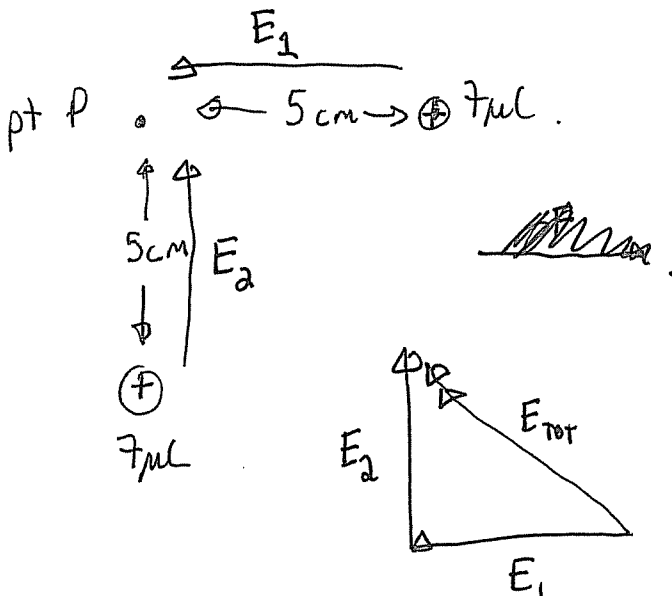 E₁
pt P
5cm
7μC.
5cm
E₂
7μC
E₂
E_TOT
E₁